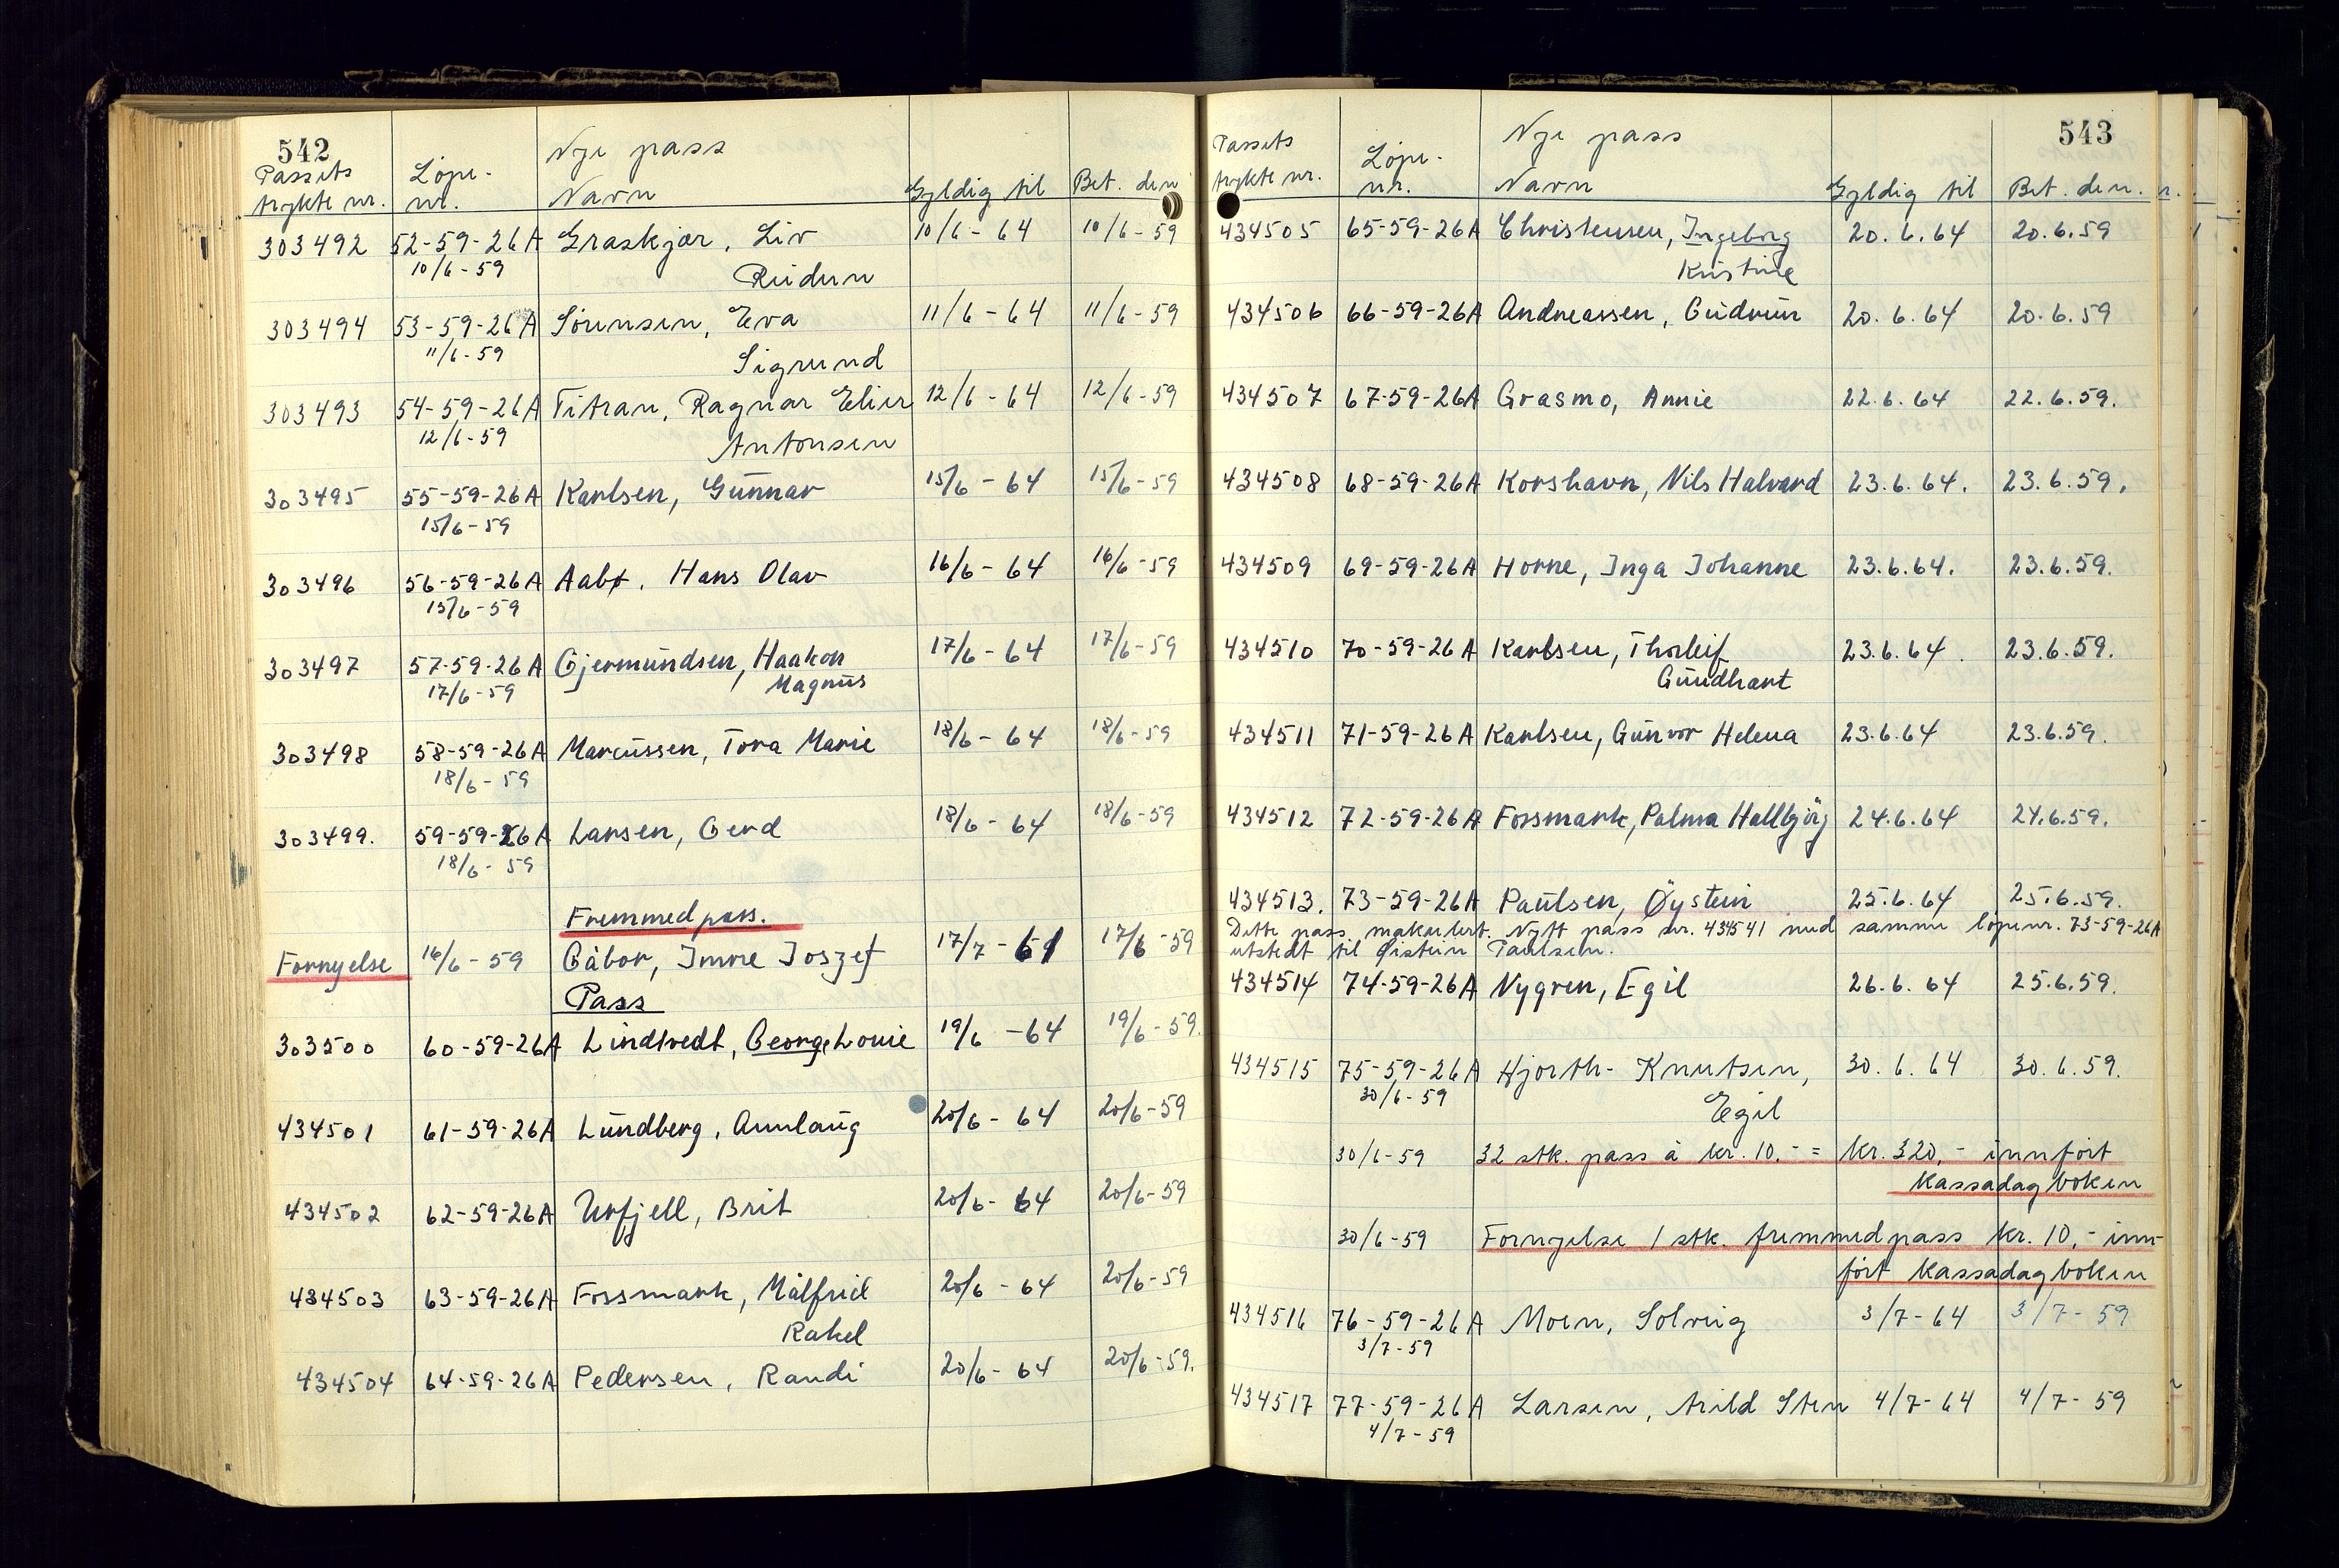 542
Nye pass
Passets Løpe-
trykte nr. nr. Navn Gyldig til Bet. den
303492 52-59-26A Graskjær, Liv 10/6 - 64 10/6 - 59
10/6 - 59 Reidun
303494 53-59-26A Sørensen, Eva 11/6 - 64 11/6 - 59
11/6 - 59 Sigrund
303493 54-59-26A Titran, Ragnar Elier 12/6 - 64 12/6 - 59
12/6 - 59 Antonsen
303495 55-59-26A Karlsen, Gunnar 15/6 - 64 15/6 - 59
15/6 - 59
303496 56-59-26A Aabø, Hans Olav 16/6 - 64 16/6 - 59
15/6 - 59
303497 57-59-26A Gjermundsen, Haakon 17/6 - 64 17/6 - 59
17/6 - 59 Magnus
303498 58-59-26A Marcussen, Tora Marie 18/6 - 64 18/6 - 59
18/6 - 59
303499. 59-59-26A Larsen, Gerd 18/6 - 64 18/6 - 59
18/6 - 59
Fremmedpass.
Fornyelse 16/6 - 59 Gàbor, Imre Joszef 17/7 - 61 17/6 - 59
Pass
303500 60-59-26A Lindtvedt, George Louie 19/6 - 64 19/6 - 59.
434501 61-59-26A Lundberg, Aunlaug 20/6 - 64 20/6 - 59
434502 62-59-26A Urfjell, Brit 20/6 - 64 20/6 - 59
434503 63-59-26A Fossmark, Målfrid 20/6 - 64 20/6 - 59
Rakel
434504 64-59-26A Pedersen, Randi 20/6 - 64 20/6 - 59.
543
Nye pass
Passets Løpe-
trykte nr. nr. Navn Gyldig til Bet. den.
434505 65-59-26A Christensen, Ingeborg 20.6.64 20.6.59
Kristine
434506 66-59-26A Andreassen, Gudrun 20.6.64 20.6.59
434507 67-59-26A Grasmo, Annie 22.6.64 22.6.59.
434508 68-59-26A Korshavn, Nils Halvard 23.6.64. 23.6.59.
434509 69-59-26A Horne, Inga Johanne 23.6.64. 23.6.59.
434510 70-59-26A Karlsen, Thorleif 23.6.64. 23.6.59.
Gundhart
434511 71-59-26A Karlsen, Gunvor Helena 23.6.64 23.6.59.
434512 72-59-26A Fossmark, Palma Hallbjörg 24.6.64 24.6.59.
434513. 73-59-26A Paulsen, Öystein 25.6.64 25.6.59.
Dette pass makulert. Nytt pass nr. 434541 med samme løpenr. 73-59-26A
utstedt til Øistein Paulsen.
434514 74-59-26A Nygren, Egil 26.6.64 25.6.59.
434515 75-59-26A Hjorth-Knutsen, 30.6.64 30.6.59.
30/6 - 59 Egil
30/6 - 59 32 stk. pass à kr. 10,- = kr. 320,- innført
kassadagboken
30/6 - 59 Fornyelse 1 stk. fremmedpass kr. 10,- inn-
ført kassadagboken
434516 76-59-26A Moen, Solveig 3/7 - 64 3/7 - 59
3/7 - 59
434517 77-59-26A Larsen, Arild Sten 4/7 - 64 4/7 - 59
4/7 - 59